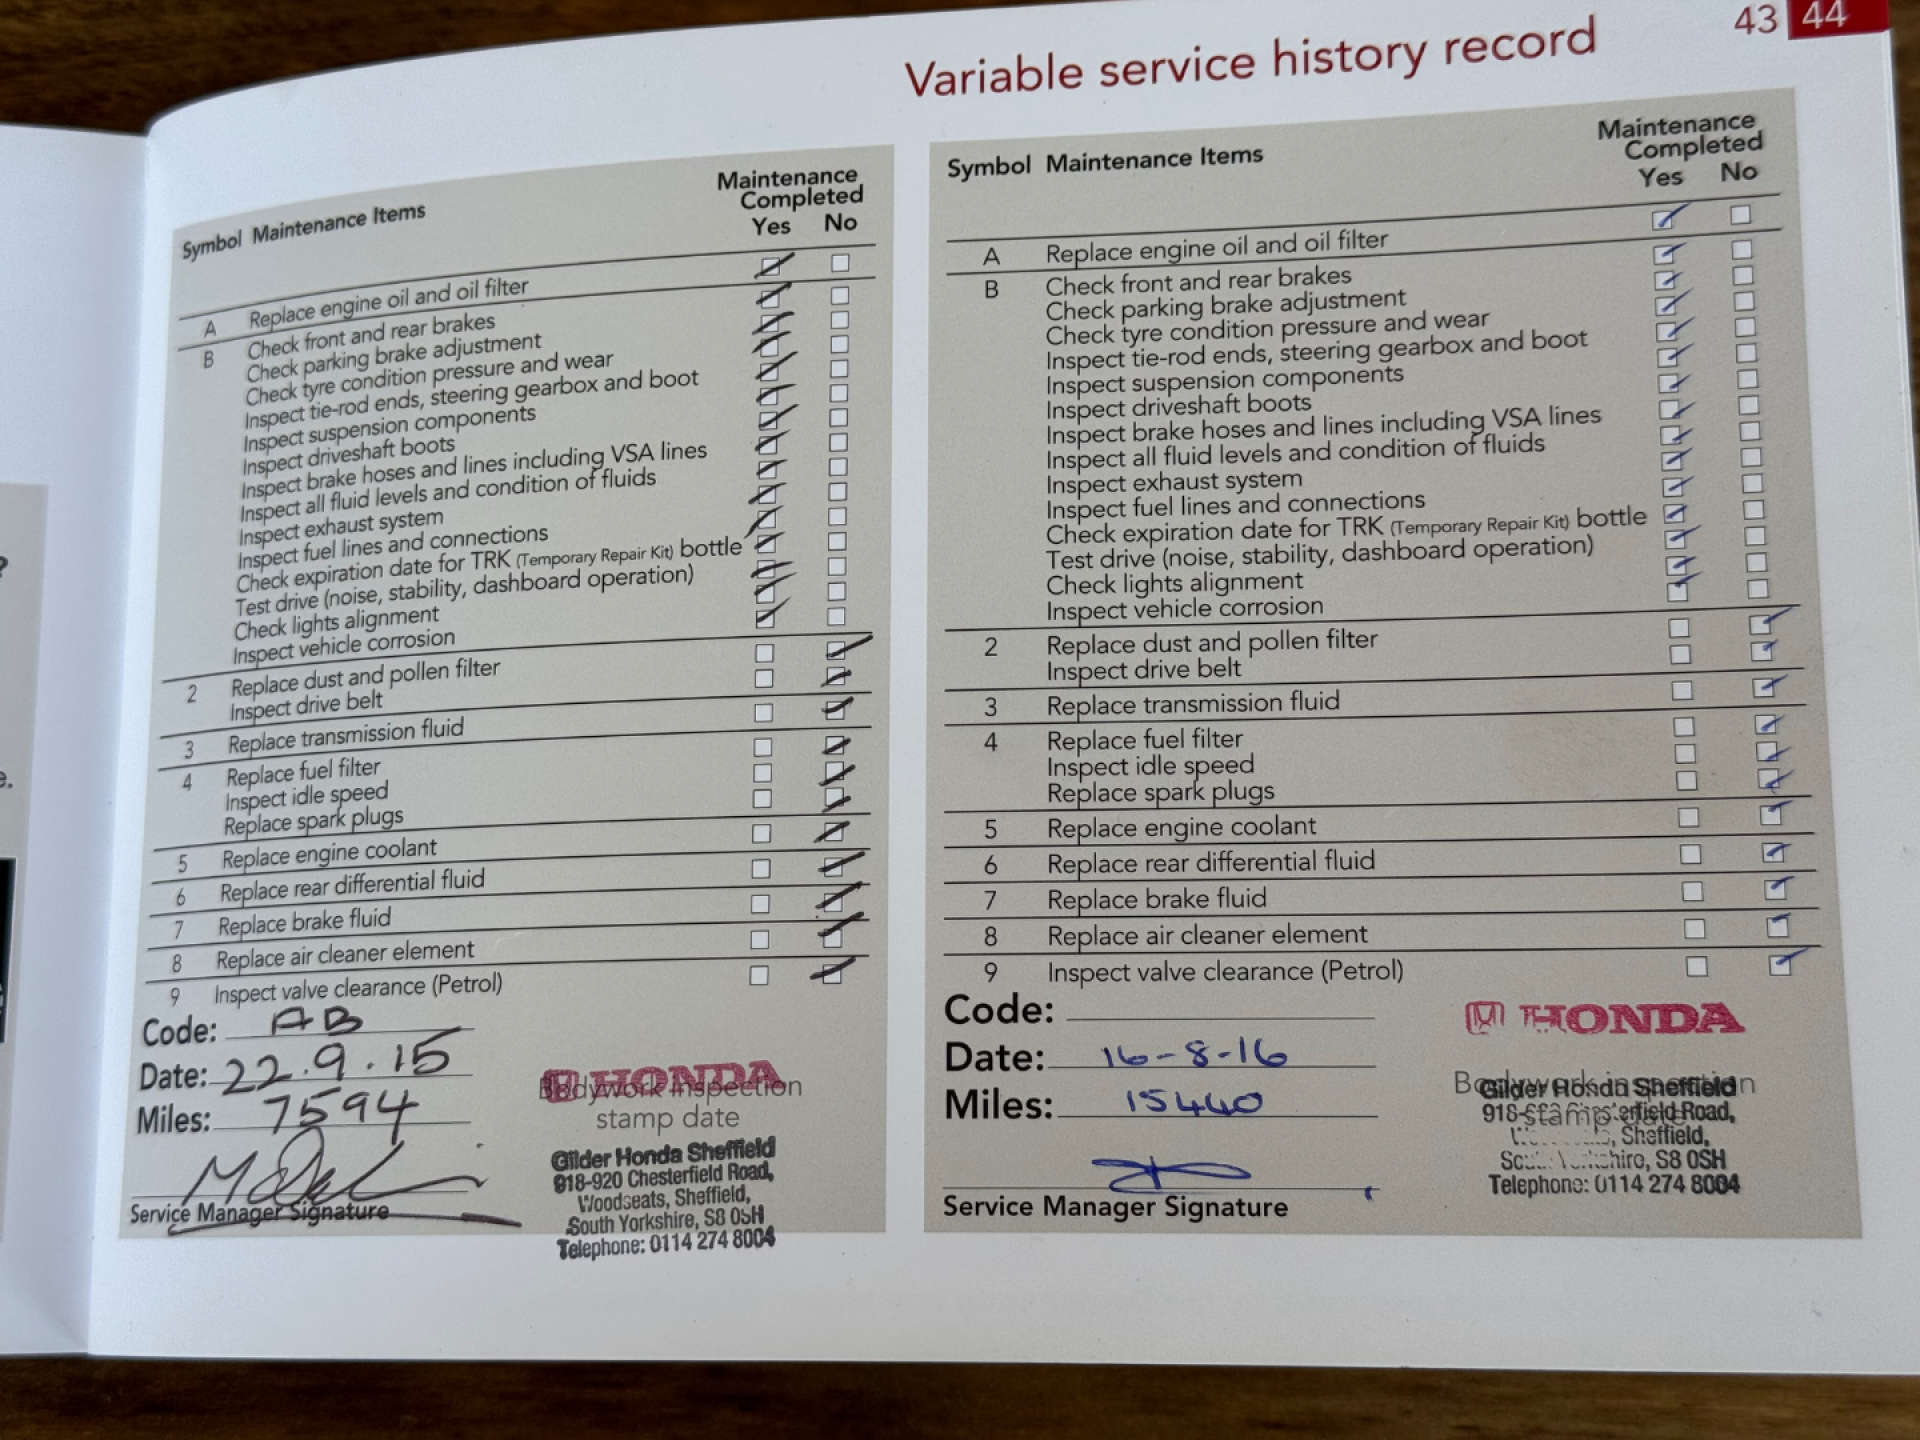 43 44
Variable service history record
Symbol Maintenance Items
Maintenance
Completed
Yes No
A Replace engine oil and oil filter
B Check front and rear brakes
Check parking brake adjustment
Check tyre condition pressure and wear
Inspect tie-rod ends, steering gearbox and boot
Inspect suspension components
Inspect driveshaft boots
Inspect brake hoses and lines including VSA lines
Inspect all fluid levels and condition of fluids
Inspect exhaust system
Inspect fuel lines and connections
Check expiration date for TRK (Temporary Repair Kit) bottle
Test drive (noise, stability, dashboard operation)
Check lights alignment
Inspect vehicle corrosion
2 Replace dust and pollen filter
Inspect drive belt
3 Replace transmission fluid
4 Replace fuel filter
Inspect idle speed
Replace spark plugs
5 Replace engine coolant
6 Replace rear differential fluid
7 Replace brake fluid
8 Replace air cleaner element
9 Inspect valve clearance (Petrol)
Code: AB
Date: 22.9.15
Miles: 7594
Service Manager Signature
HONDA
Bodywork inspection
stamp date
Gilder Honda Sheffield
918-920 Chesterfield Road,
Woodseats, Sheffield,
South Yorkshire, S8 0SH
Telephone: 0114 274 8004
Symbol Maintenance Items
Maintenance
Completed
Yes No
A Replace engine oil and oil filter
B Check front and rear brakes
Check parking brake adjustment
Check tyre condition pressure and wear
Inspect tie-rod ends, steering gearbox and boot
Inspect suspension components
Inspect driveshaft boots
Inspect brake hoses and lines including VSA lines
Inspect all fluid levels and condition of fluids
Inspect exhaust system
Inspect fuel lines and connections
Check expiration date for TRK (Temporary Repair Kit) bottle
Test drive (noise, stability, dashboard operation)
Check lights alignment
Inspect vehicle corrosion
2 Replace dust and pollen filter
Inspect drive belt
3 Replace transmission fluid
4 Replace fuel filter
Inspect idle speed
Replace spark plugs
5 Replace engine coolant
6 Replace rear differential fluid
7 Replace brake fluid
8 Replace air cleaner element
9 Inspect valve clearance (Petrol)
Code:
Date: 16-8-16
Miles: 15440
Service Manager Signature
HONDA
Bodywork inspection
stamp date
Gilder Honda Sheffield
Road,
Sheffield,
S8 0SH
Telephone: 0114 274 8004